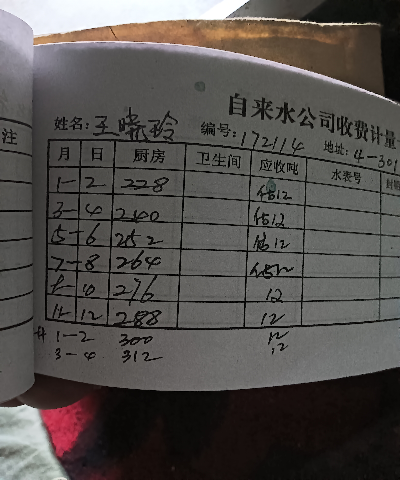 自来水公司收费计量
姓名: 王晓玲 编号: 172114 地址: 4-301
注 月 日 厨房 卫生间 应收吨 水表号
1-2 228 估12
3-4 240 估12
5-6 252 估12
7-8 264 估12
10 276 12
11-12 288 12
1-2 300 12
3-4 312 12